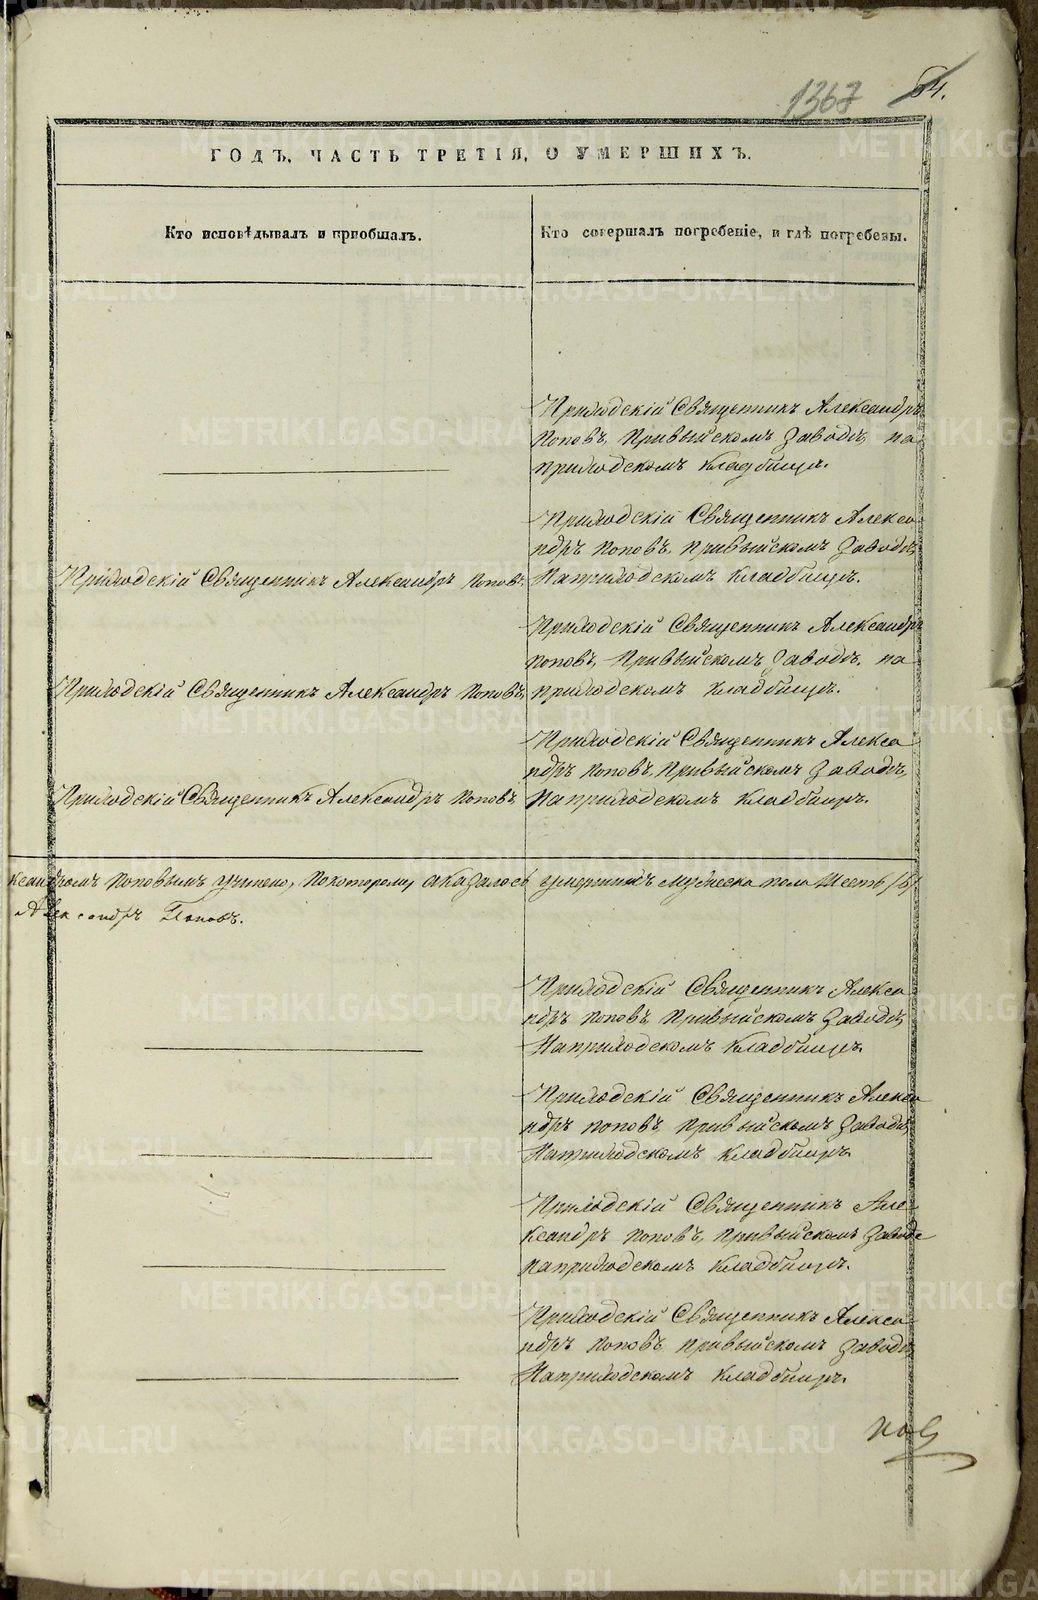 1367 64.
ГОДЪ, ЧАСТЬ ТРЕТІЯ, О УМЕРШИХЪ.
Кто исповѣдывалъ и пріобщалъ.
Кто совершалъ погребеніе, и гдѣ погребены.
Приходскій Священникъ Александръ
Поповъ, Привыйскомъ Заводѣ, на
приходскомъ кладбищѣ.
Приходскій Священникъ Алекса
ндръ Поповъ, Привыйскомъ Заводѣ,
Приходскій Священникъ Александръ Поповъ.
Наприходскомъ кладбищѣ.
Приходскій Священникъ Александръ
Поповъ, Привыйскомъ Заводѣ, на
Приходскій Священникъ Александръ Поповъ,
приходскомъ кладбищѣ.
Приходскій Священникъ Алекса
ндръ Поповъ, Привыйскомъ Заводѣ,
Приходскій Священникъ Александръ Поповъ,
Наприходскомъ кладбищѣ.
ксандромъ Поповымъ учинено, Покоторому, оказалось умершихъ Мужеска пола Шесть /6/
Александръ Поповъ.
Приходскій Священникъ Алекса
ндръ Поповъ, Привыйскомъ Заводѣ,
Наприходскомъ кладбищѣ.
Приходскій Священникъ Алекса
ндръ Поповъ Привыйскомъ Заводѣ,
Наприходскомъ кладбищѣ
Приходскій Священникъ Але
ксандръ Поповъ, Привыйскомъ Заводе
наприходскомъ кладбищѣ.
Приходскій Священникъ Алекса
ндръ Поповъ, Привыйскомъ Заводѣ,
Наприходскомъ кладбищѣ.
METRIKI.GASO-URAL.RU